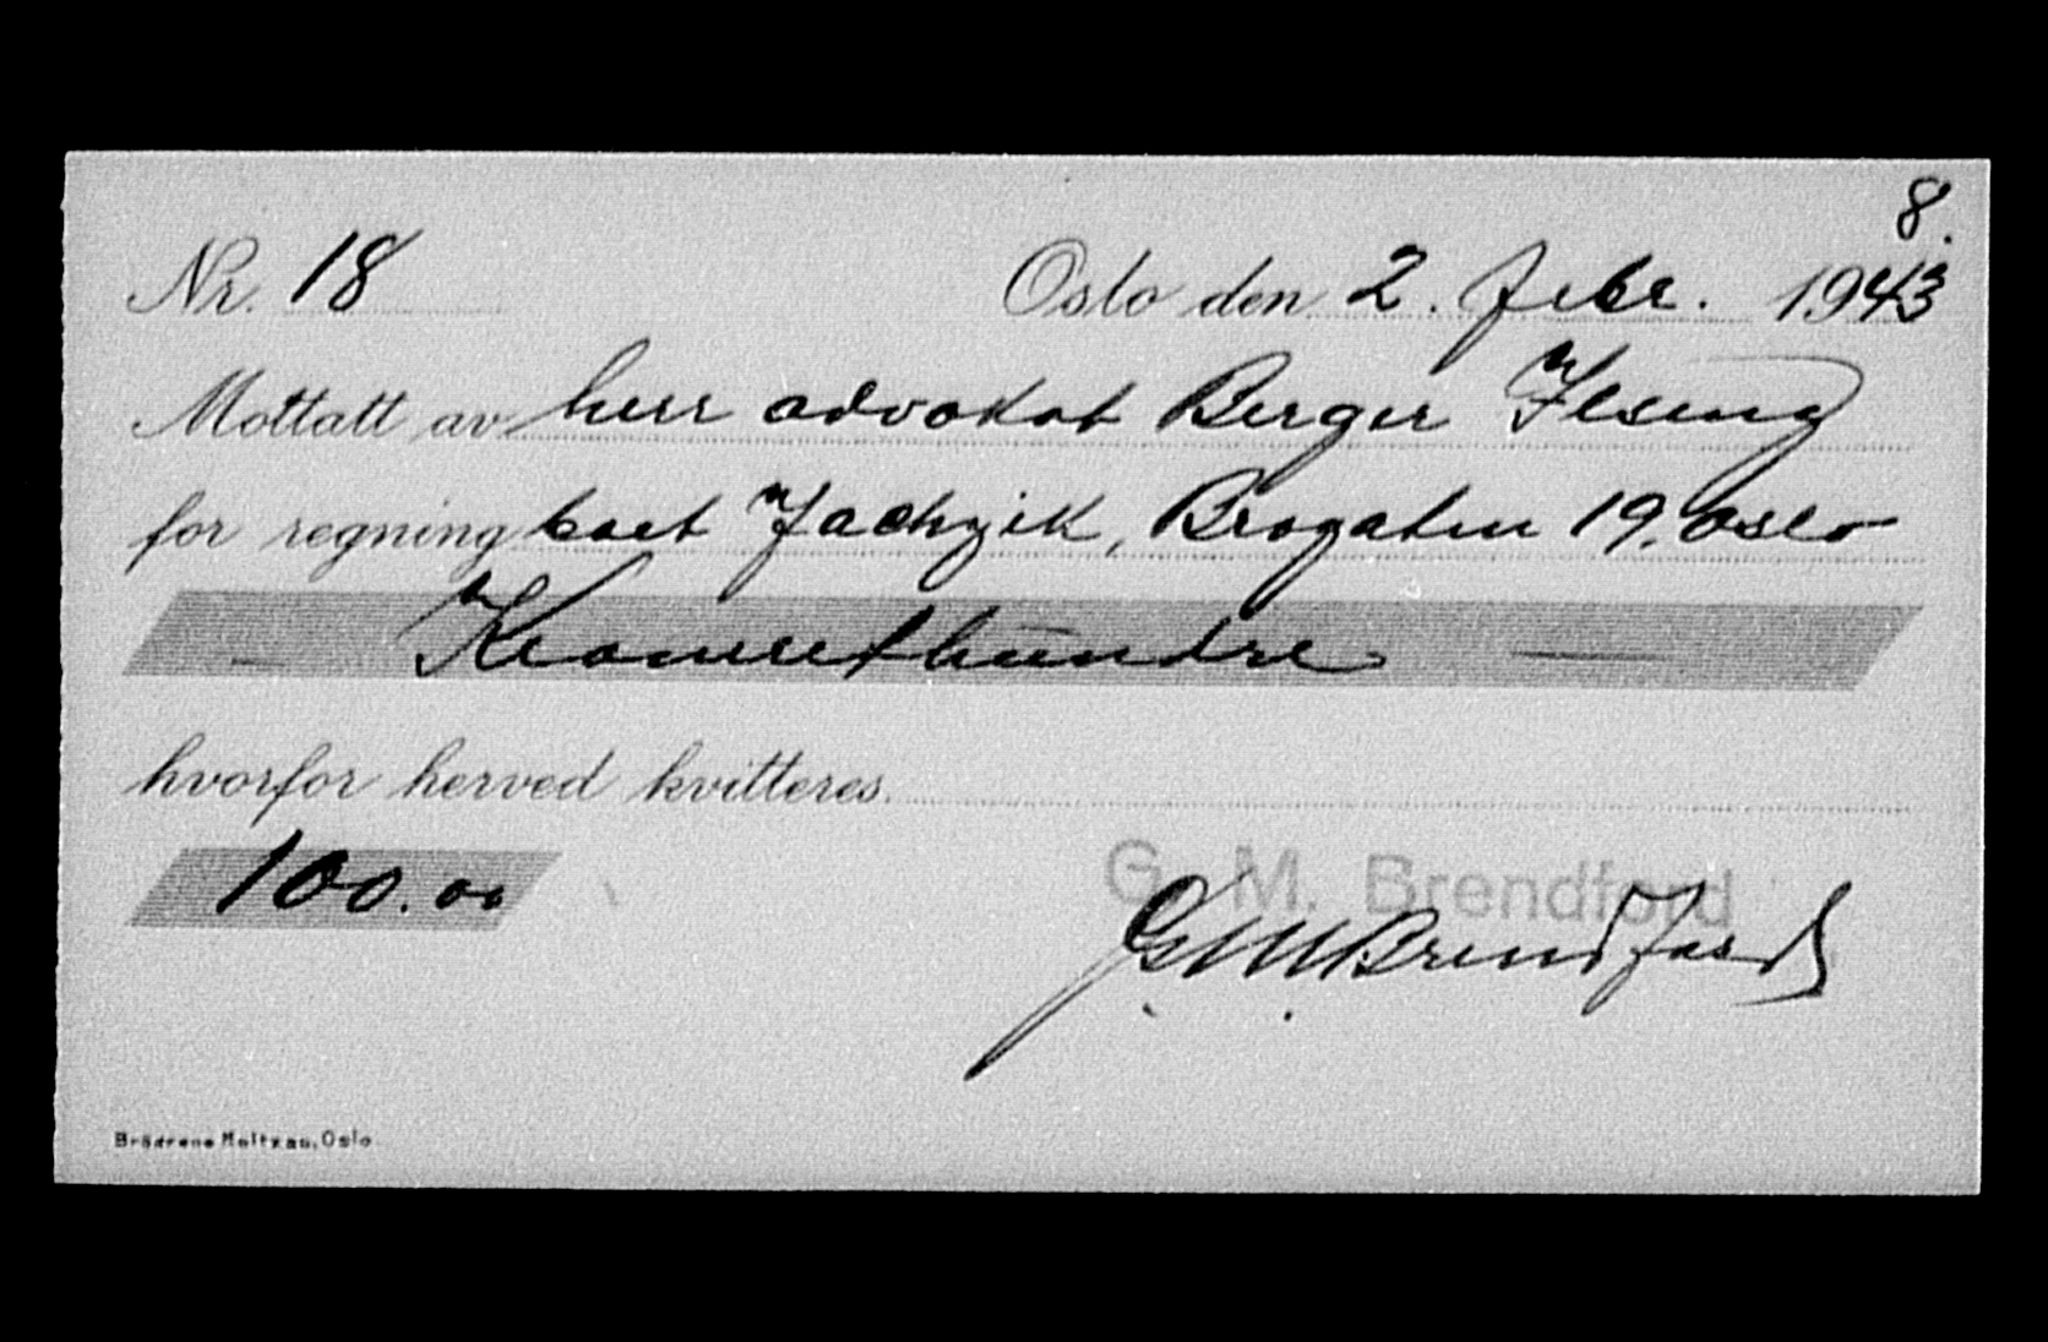 8.
Nr. 18 Oslo den 2. Febr. 1943
Mottatt av herr advokat Berger Ilseng
for regning boet Jachzik, Brogaten 19. Oslo
Kroneretthundre
hvorfor herved kvitteres
100.00
G. M. Brendford
G M Brendford
Brödrene Moltzau, Oslo